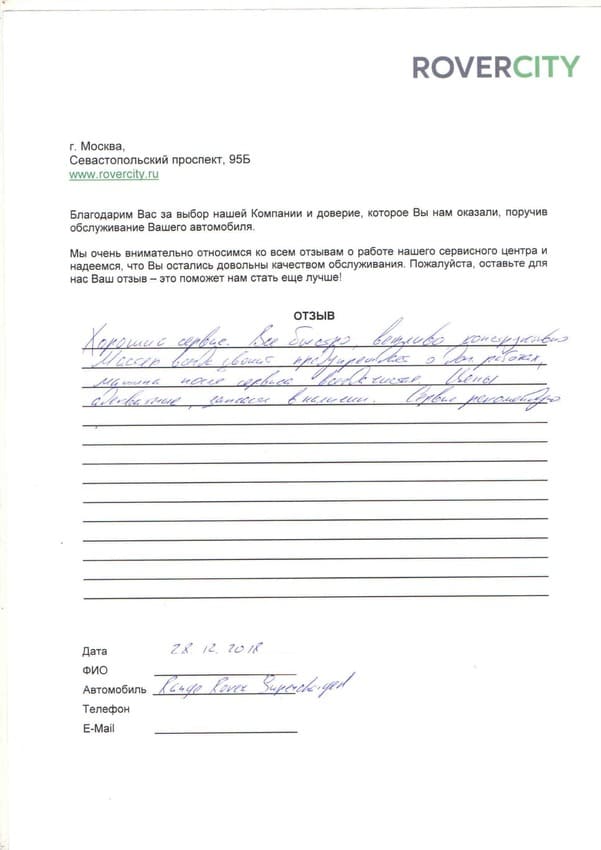 ROVERCITY
г. Москва,
Севастопольский проспект, 95Б
www.rovercity.ru
Благодарим Вас за выбор нашей Компании и доверие, которое Вы нам оказали, поручив
обслуживание Вашего автомобиля.
Мы очень внимательно относимся ко всем отзывам о работе нашего сервисного центра и
надеемся, что Вы остались довольны качеством обслуживания. Пожалуйста, оставьте для
нас Ваш отзыв – это поможет нам стать еще лучше!
ОТЗЫВ
Хороший сервис. Все быстро, вежливо конструктивно
Мастер всегда звонит предупреждает о доп. работах,
машина после сервиса всегда чистая. Цены
адекватные, запчасти в наличии. Сервис рекомендую
Дата 28.12.2018
ФИО
Автомобиль Range Rover Supercharged
Телефон
E-Mail